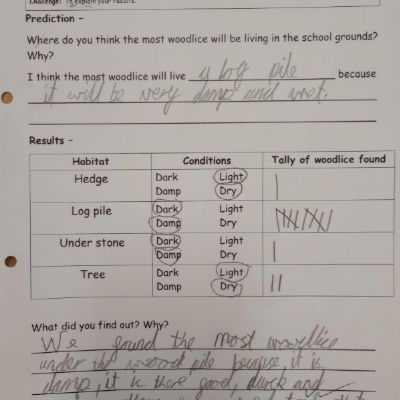 Challenge: To explain your results.
Prediction -
Where do you think the most woodlice will be living in the school grounds?
Why?
I think the most woodlice will live a log pile because
it will be very damp and wet.
Results -
Habitat Conditions Tally of woodlice found
Hedge Dark Light
Damp Dry
Log pile Dark Light
Damp Dry
Under stone Dark Light
Damp Dry
Tree Dark Light
Damp Dry
What did you find out? Why?
We found the most woodlice
under the wood pile because it is
damp, it is there good, darck and